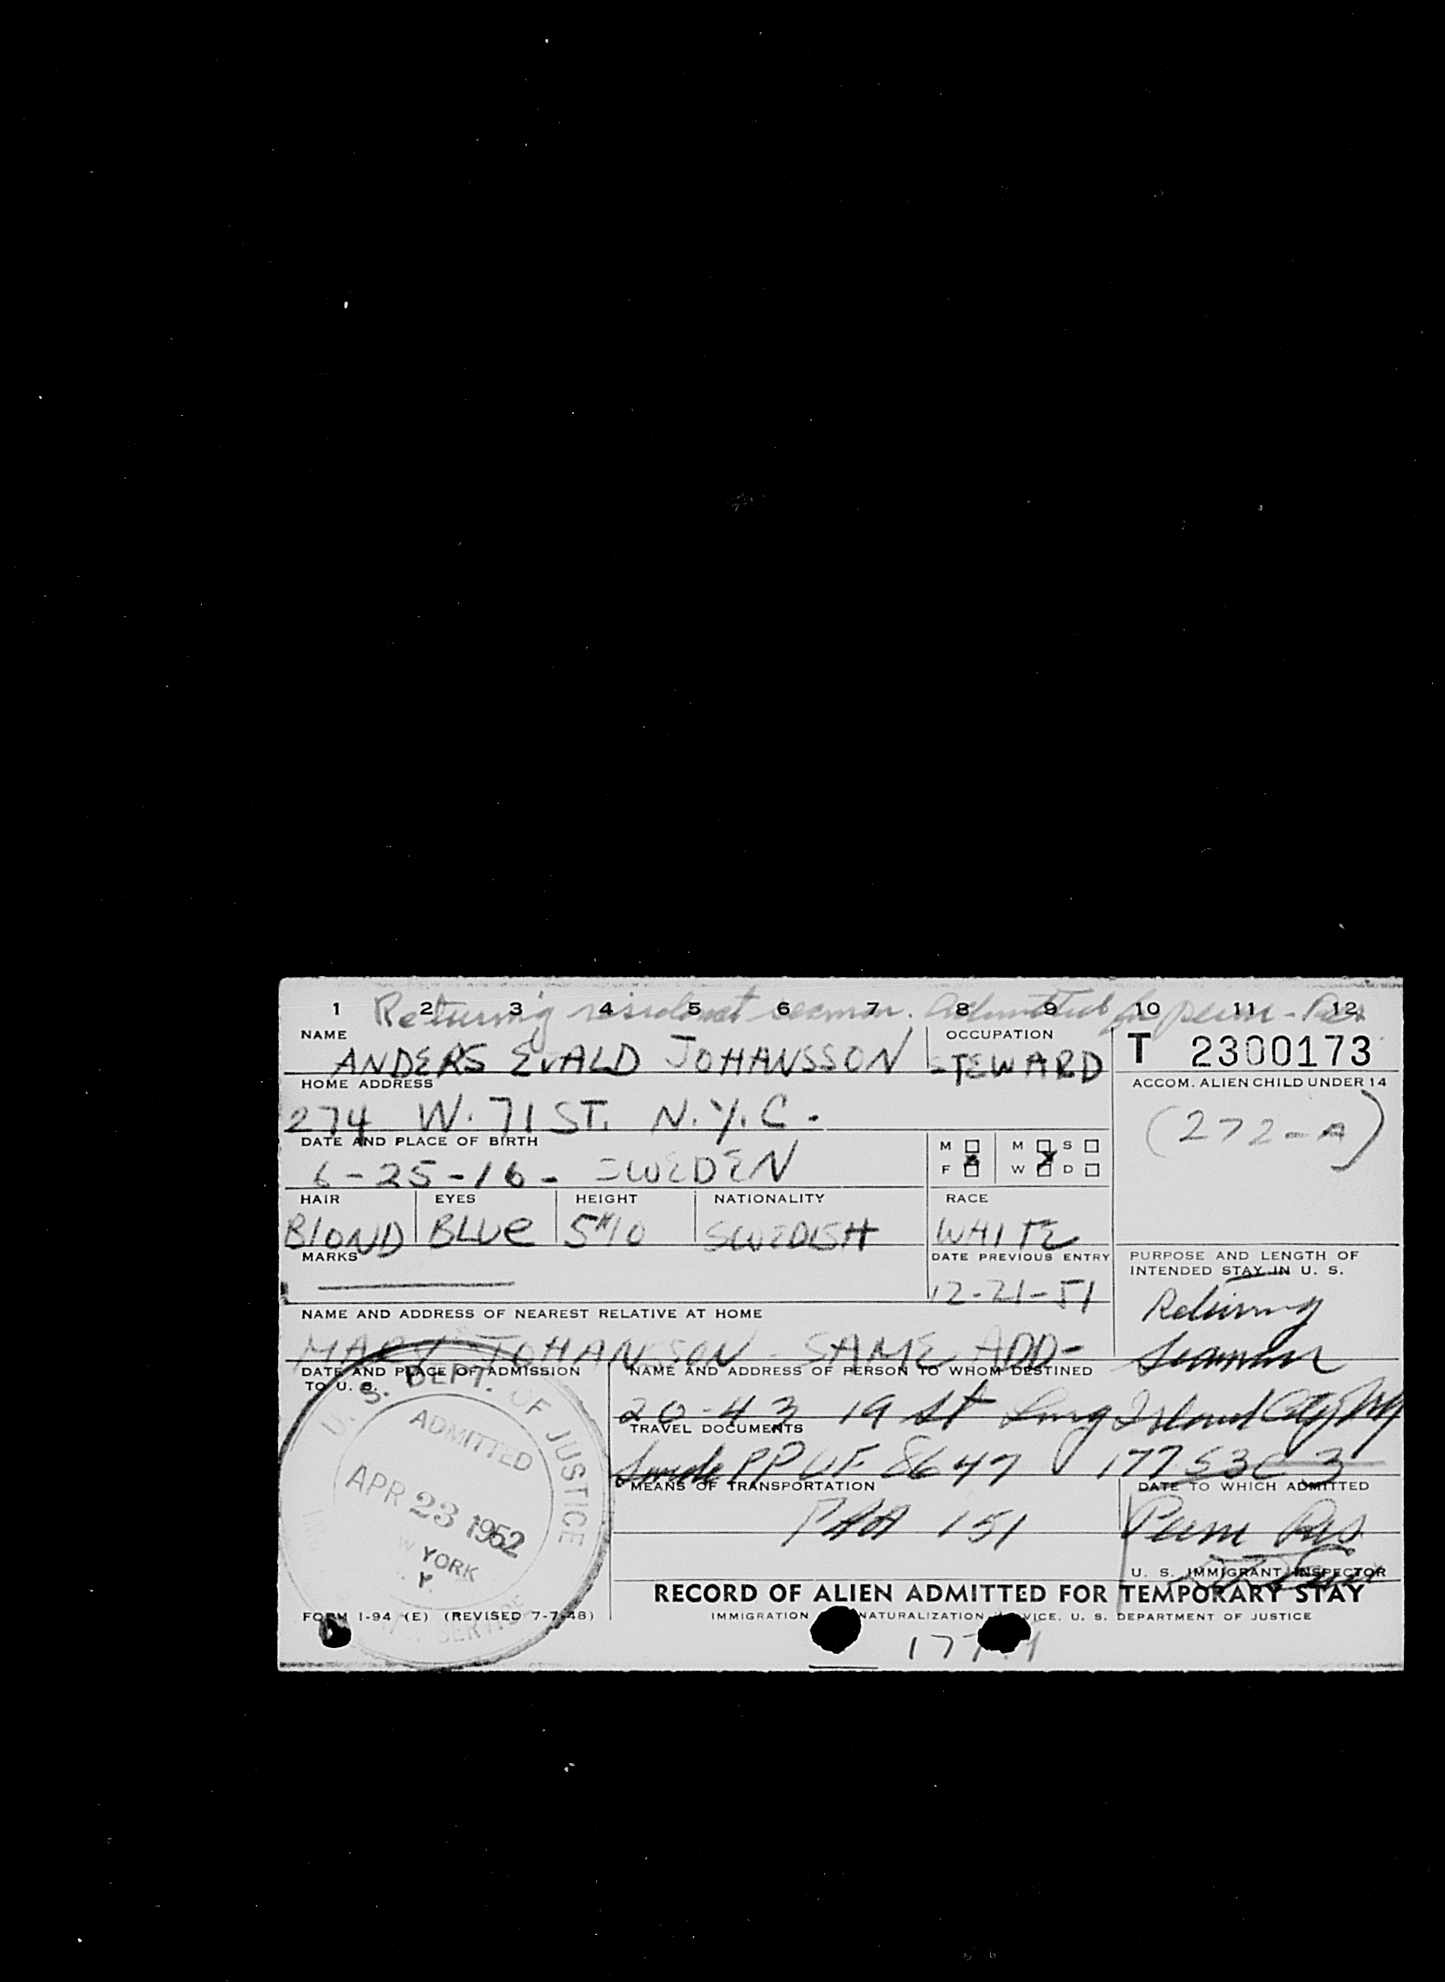 1 2 3 4 5 6 7 8 9 10 11 12
Returning resident seaman. Admitted for perm. Res
NAME
ANDERS EVALD JOHANSSON
OCCUPATION
STEWARD
T 2300173
HOME ADDRESS
274 W. 71 ST. N.Y.C.
ACCOM. ALIEN CHILD UNDER 14
(272-A)
DATE AND PLACE OF BIRTH
6-25-16- SWEDEN
M F
M S
W D
HAIR
BLOND
EYES
BLUE
HEIGHT
5"10
NATIONALITY
SWEDISH
RACE
WHITE
MARKS
DATE PREVIOUS ENTRY
12-21-51
PURPOSE AND LENGTH OF
INTENDED STAY IN U. S.
Returning
Seaman
NAME AND ADDRESS OF NEAREST RELATIVE AT HOME
MARY JOHANSSON - SAME ADD-
DATE AND PLACE OF ADMISSION
TO U. S.
U. S. DEPT. OF JUSTICE
ADMITTED
APR 23 1952
YORK
SERVICE
NAME AND ADDRESS OF PERSON TO WHOM DESTINED
20-43 19 St Long Island City NY
TRAVEL DOCUMENTS
Swede PP UF 8647 17753C-3
MEANS OF TRANSPORTATION
PAA 151
DATE TO WHICH ADMITTED
Perm Res
U. S. IMMIGRANT INSPECTOR
RECORD OF ALIEN ADMITTED FOR TEMPORARY STAY
FORM I-94 (E) (REVISED 7-7-48)
IMMIGRATION NATURALIZATION SERVICE, U. S. DEPARTMENT OF JUSTICE